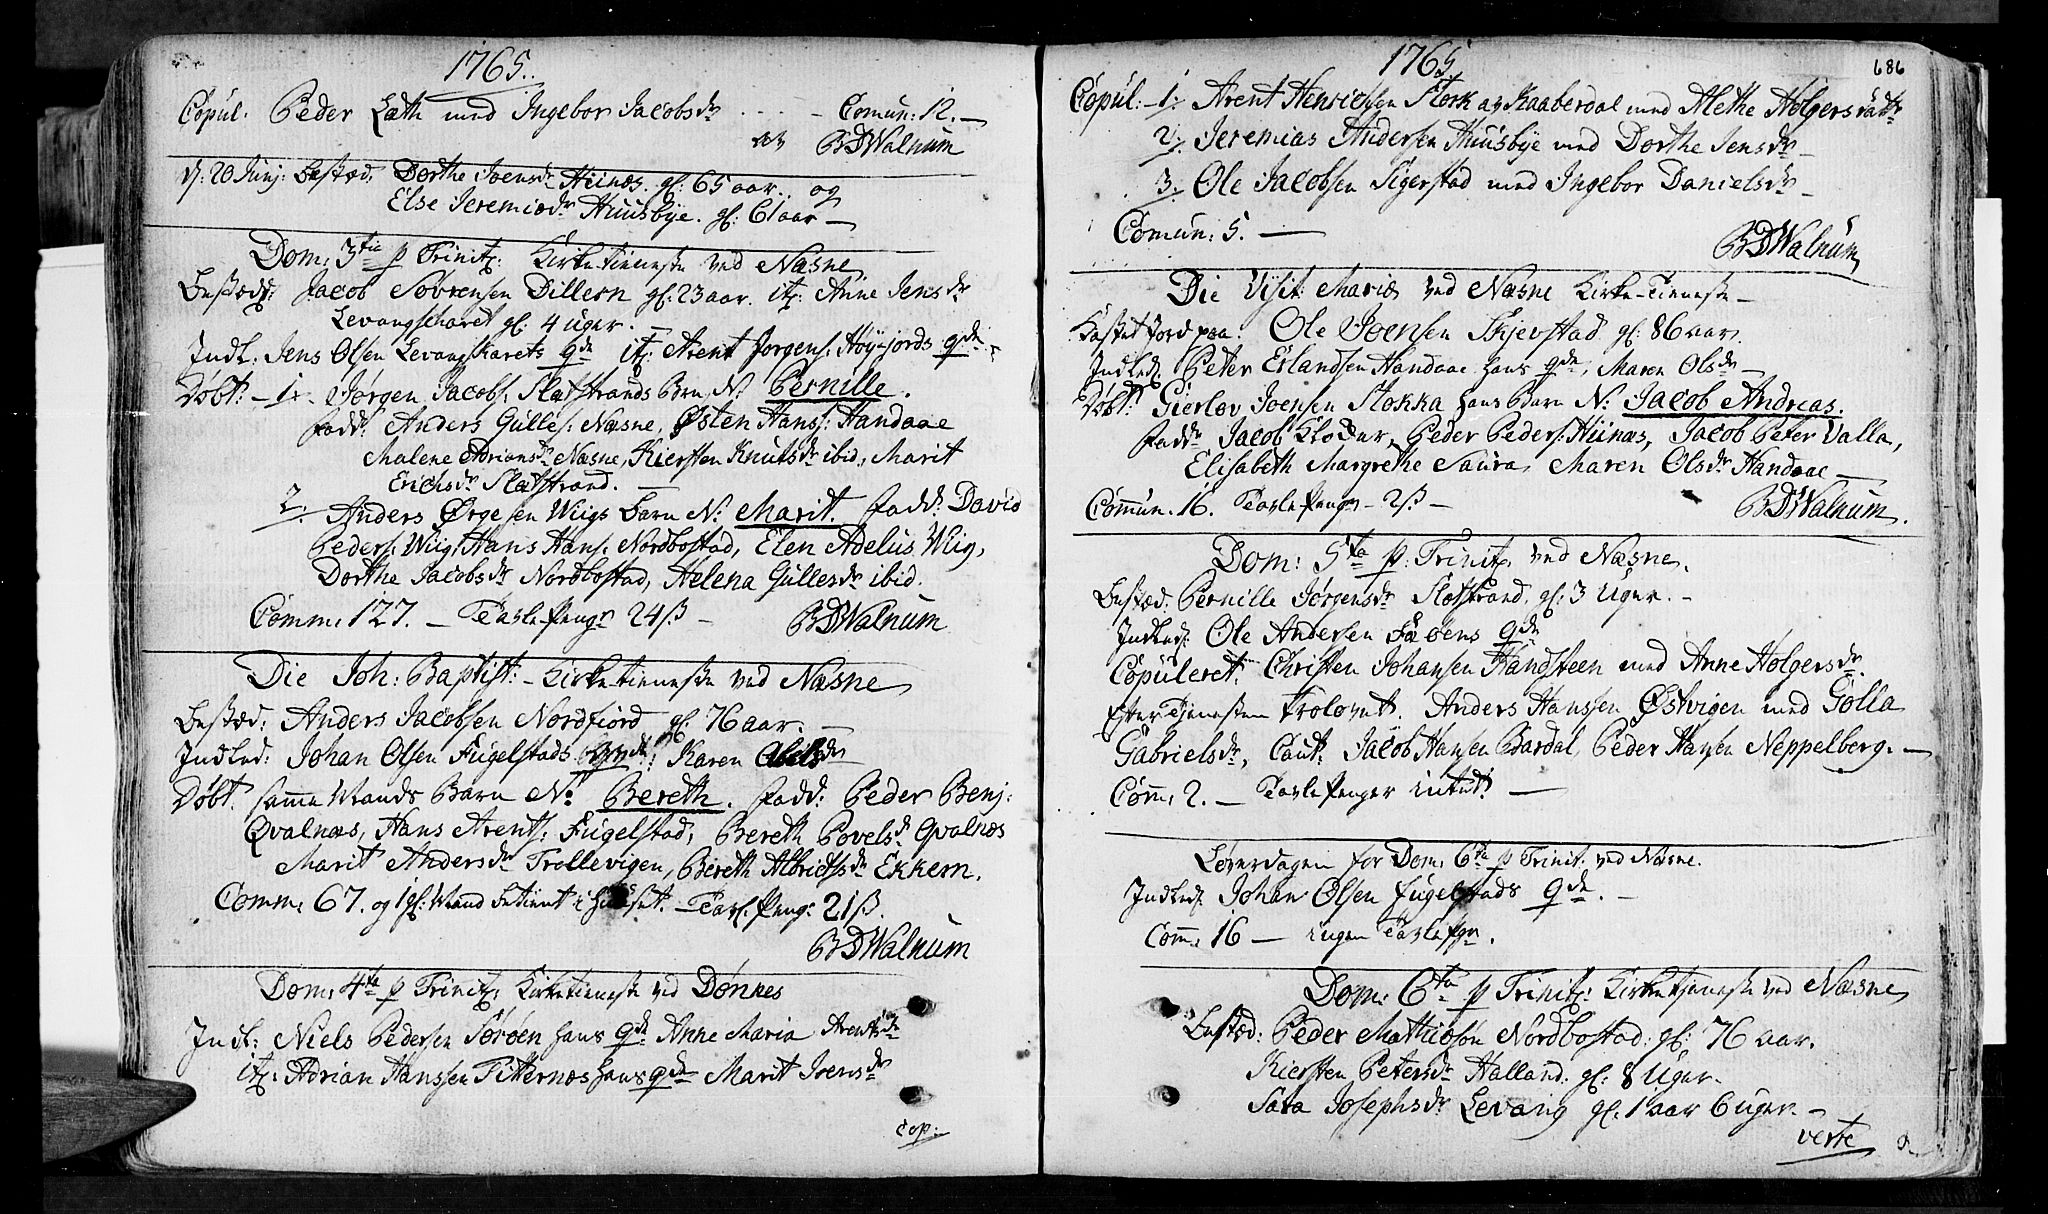 1765.
Copul. Peder Lath med Ingebor Jacobsdr - - - - Comun: 12. -
BDWalnum
d: 20 Junj: bestæd: Dorthe Joensdr Hiinæs. gl: 65 aar. og
Else Jeremiædr Huusbye. gl: 61 aar -
Dom: 3tia p Trinit: Kirketieneste ved Næsne
bestæd: Jacob Sövrensen Dillern gl: 23 aar. it: Anne Jensdr
Levangscharet gl: 4 uger.
Indl: Jens Olsen Levangskarets qde it: Arent Jorgens: Höyfjords qde
Döbt: - 1. Jørgen Jacobs: Slatstrands Barn N: Pernille.
Fadd: Anders Gulles: Næsne, Østen Hanss: Handaae
Malene Adriansdr Næsne, Kiersten Knutsdr ibid, Marit
Erichsdr Slatstrand.
2. Anders Ørgesen Wiigs barn N: Marit. Fadd: David
Peders: Wiig, Hans Hans: Nordbostad, Elen Adelus Wiig,
Dorthe Jacobsdr Nordbostad, Helena Gullesdr ibid.
Comm: 127. - Tavle Penge 24 ß - BDWalnum
Die Joh: Baptist: - Kirketieneste ved Næsne
bestæd: Anders Jacobsen Nordfiord gl: 76 aar. -
Indled: Johan Olsen Fugelstads qvinde: Karen Abelsdr
Döbt. samme Mands Barn N: Bereth. Fadd: Peder Benj:
Qvalnæs, Hans Arents: Fugelstad, Bereth Povelsdr Qvalnæs
Marit Andersdr Trollevigen, Bereth Albrichtsdr Ekkern.
Comm: 67. og 1 gl: Mand betient i Huuset. - Tavl. Peng: 21 ß.
BDWalnum
Dom: 4ta p Trinit: Kirketieneste ved Dønnes
Indl: Niels Pedersen Sörøen hans qde Anne Maria Arentsdr
it: Adrian Hanssen Titternæs hans qde Marit Joensdr
cop:
1765
686
Copul: - 1. Arent Henrichsen Stork af Kaaberdal med Alethe Holgersdatr
2. Jeremias Andersen Huusbye med Dorthe Jensdr -
3. Ole Jacobsen Sigerstad med Ingebor Danielsdr -
Comun: 5. -
BDWalnum
Die Visit: Mariæ ved Næsne Kirke-Tieneste -
Kastet Jord paa. Ole Joensen Skjevstad gl: 86 aar.
Indled: Peter Erlandsen Handaae hans qde, Maren Olsdr -
Döbt: Gierlov Joensen Stokka hans Barn N: Jacob Andreas.
Fadd: Jacob Klocker, Peder Peders: Hiinæs, Jacob Peter Valla,
Elisabeth Margrethe Saura, Maren Olsdr Handaae -
Commun. 16. Tavle Penge - 2 ß - BDWalnum.
Dom: 5ta p: Trinit: ved Næsne.
bestæd: Pernille Jørgensdr Slotstrand, gl: 3 Uger. -
Indled: Ole Andersen Fæöens qde
Copuleret: Christen Johansen Handsteen med Anne Holgersdr
Efter Tjenesten Trolovet. Anders Hanssen Østvigen med Golla
Gabrielsdr, Caut: Jacob Hansen Bardal, Peder Hansen Neppelberg. -
Com: 2. - Tavle Penger intet -
Löverdagen for Dom: 6ta p Trinit. ved Næsne.
Indled: Johan Olsen Fugelstads qde. -
Com: 16 - ingen Tavle pge.
Dom: 6ta p Trinit: Kirketjeneste ved Næsne
bestæd: Peder Mathiæsøn Nordbostad: gl: 76 aar.
Kiersten Petersdr Halland: gl: 8 Uger.
Sara Josephsdr Levang gl: 1 aar 6 uger -
verte